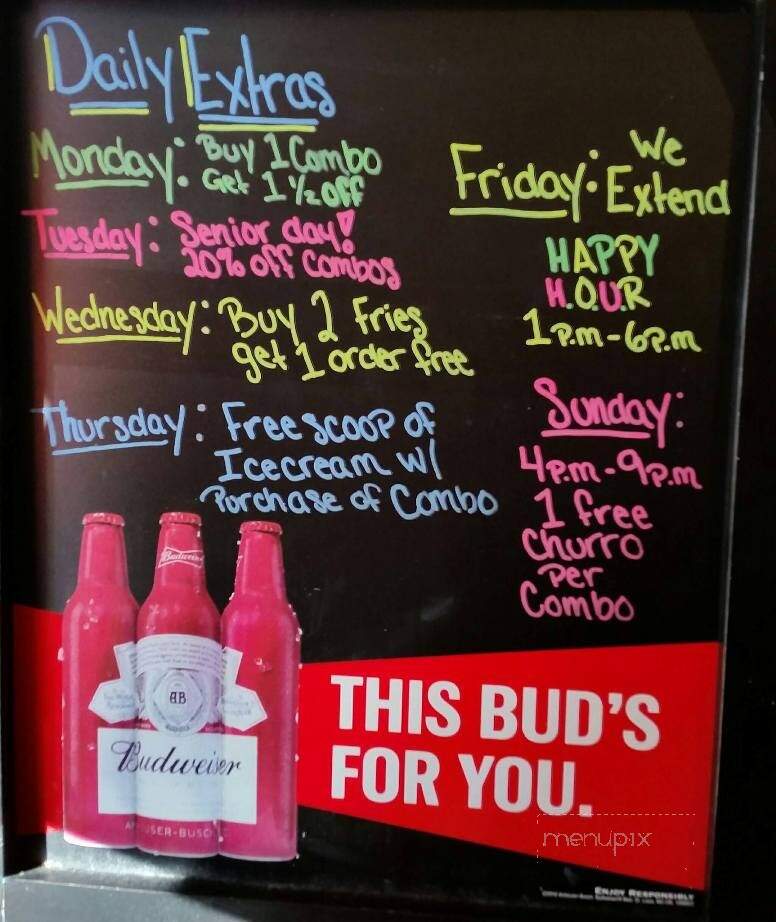 Daily Extras
Monday: Buy 1 Combo
Get 1 ½ off
Tuesday: Senior day!
20% off Combos
Wednesday: Buy 2 Fries
get 1 order free
Thursday: Free scoop of
Icecream w/
Purchase of Combo
Friday: We
Extend
HAPPY
H.O.U.R
1 P.m - 6 P.m
Sunday:
4 P.m - 9 P.m
1 free
Churro
Per
Combo
Budweiser
AB
Budweiser
THIS BUD'S
FOR YOU.
menupix
ENJOY RESPONSIBLY